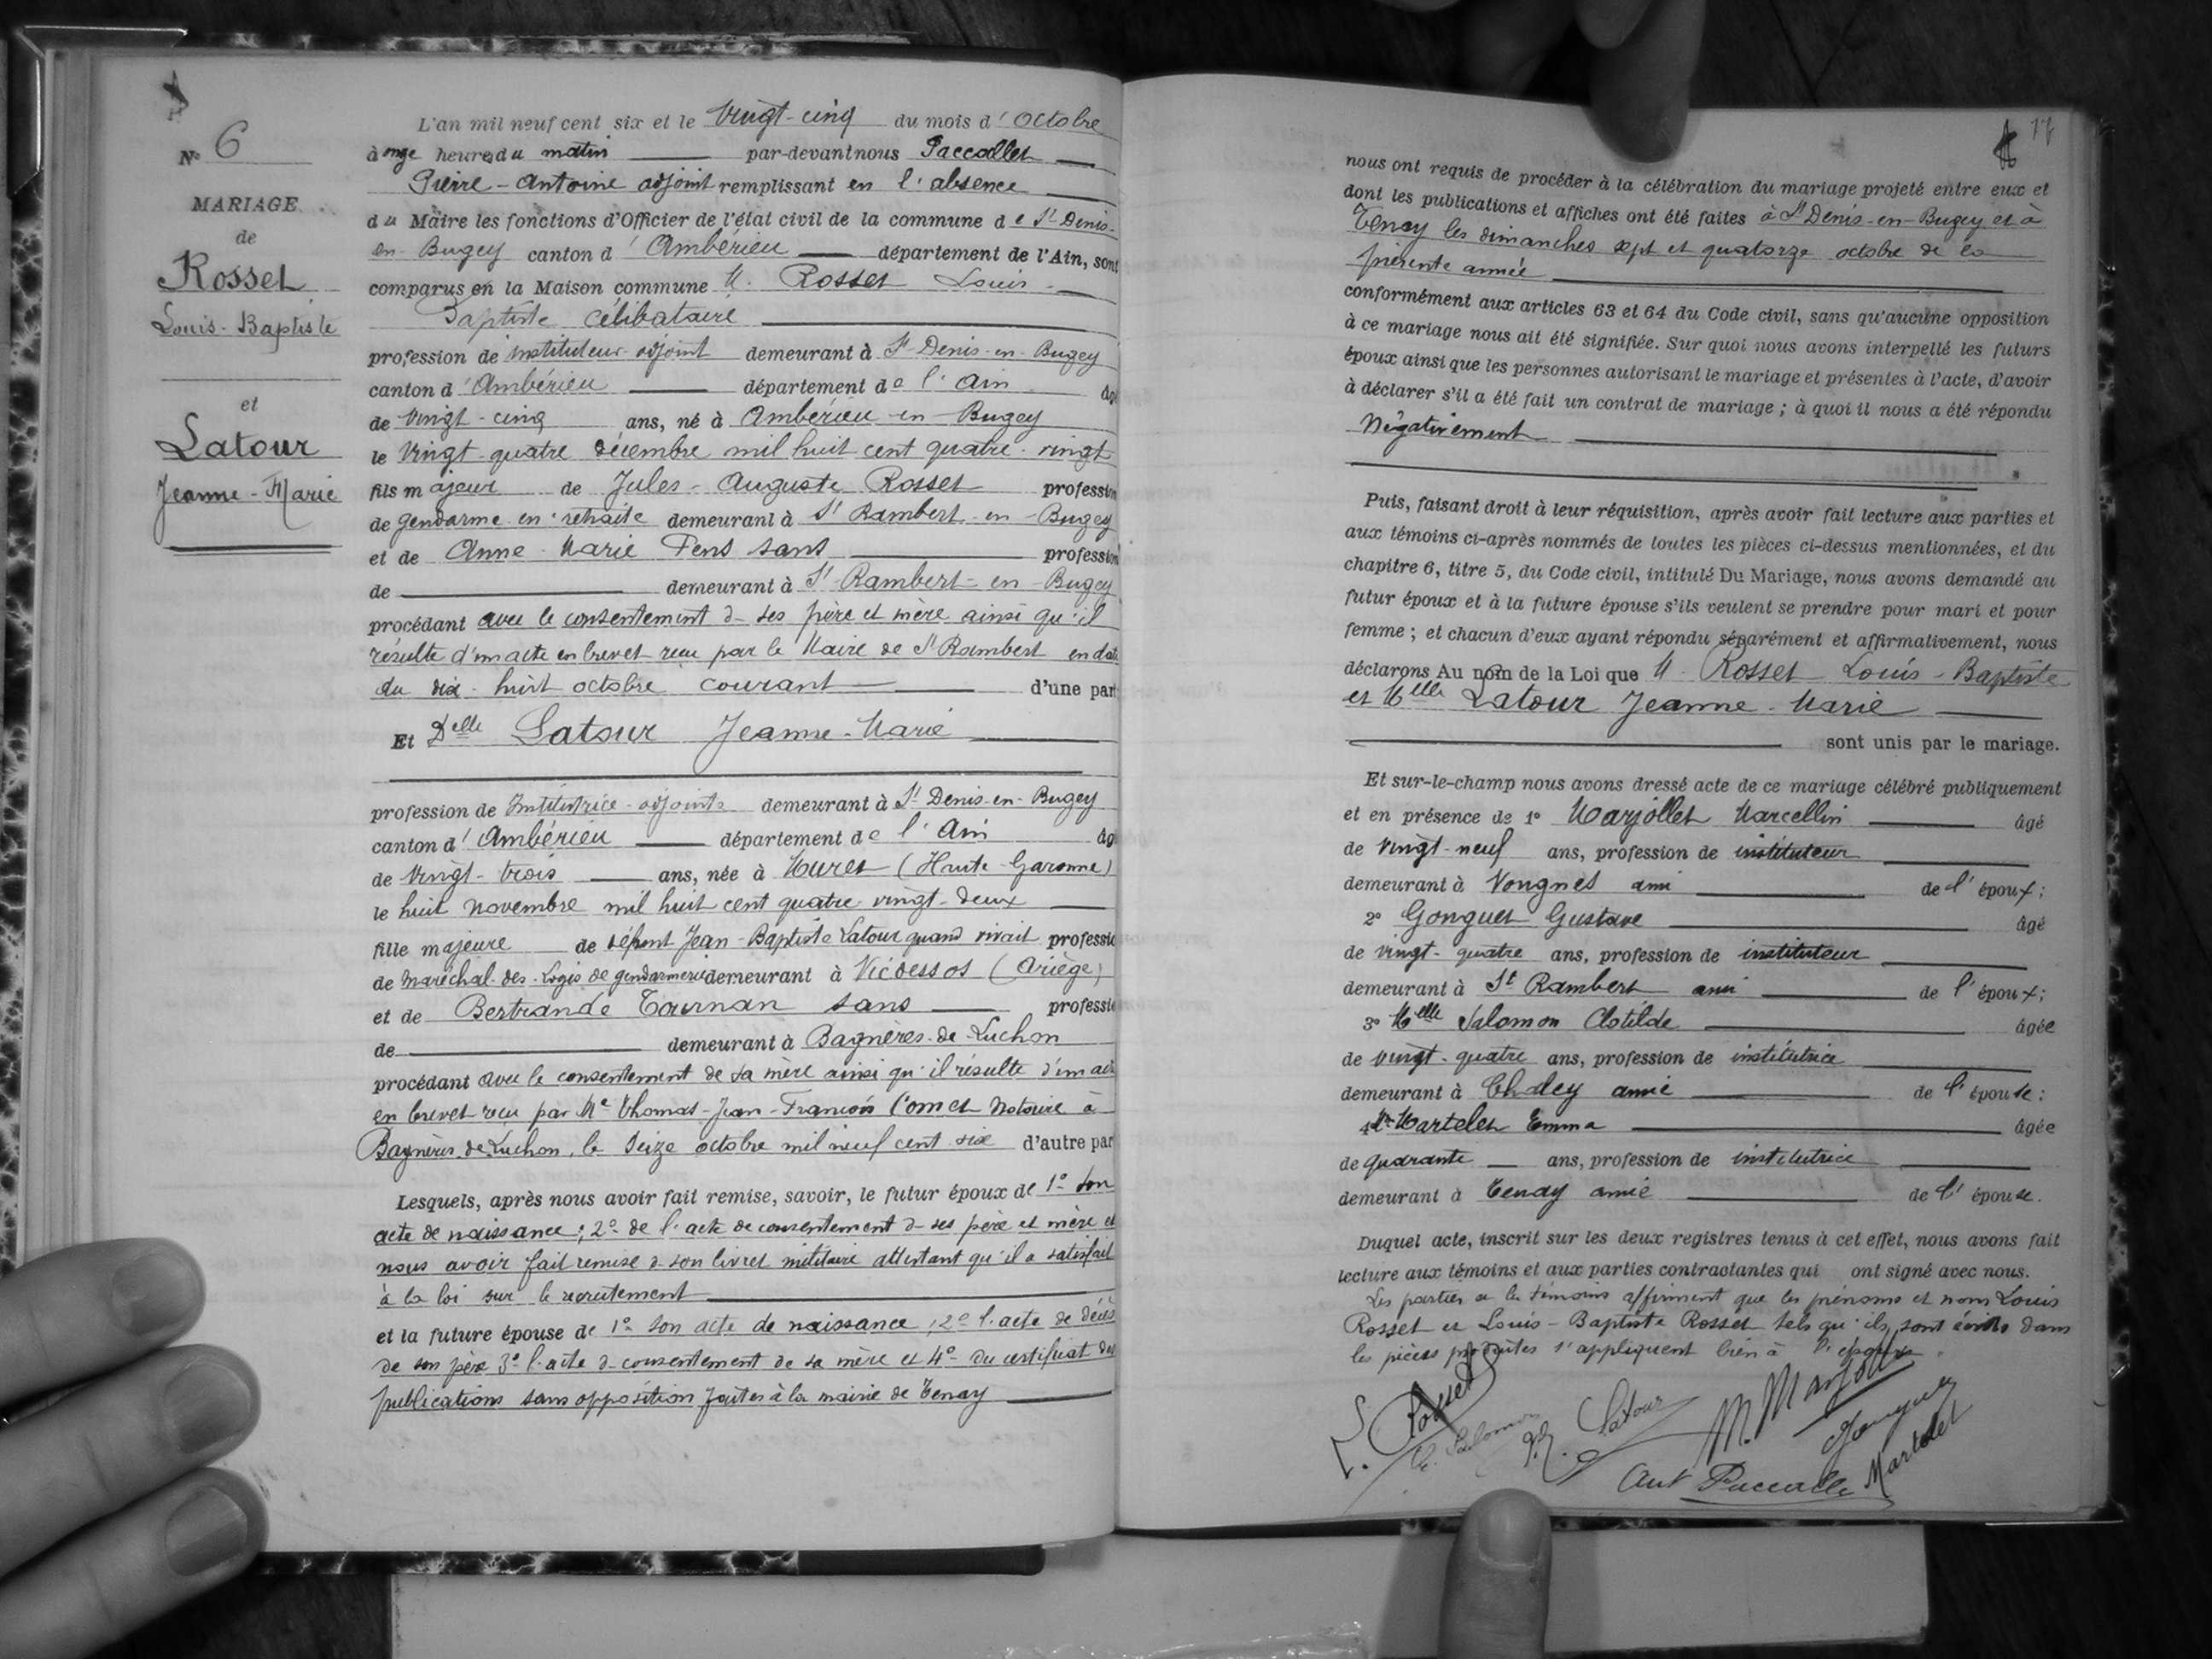 N° 6
MARIAGE
de
Rosset
Louis-Baptiste
et
Latour
Jeanne-Marie
L'an mil neuf cent six et le vingt-cinq du mois d'octobre
à onze heures du matin par-devant nous Paccallet
Pierre-Antoine adjoint remplissant en l'absence
du Maire les fonctions d'Officier de l'état civil de la commune de St-Denis-
en-Bugey canton d'Ambérieu département de l'Ain, sont
comparus en la Maison commune M. Rosset Louis-
Baptiste célibataire
profession de instituteur-adjoint demeurant à St-Denis-en-Bugey
canton d'Ambérieu département de l'Ain âgé
de vingt-cinq ans, né à Ambérieu-en-Bugey
le vingt-quatre décembre mil huit cent quatre-vingt
fils majeur de Jules-Auguste Rosset profession
de gendarme en retraite demeurant à St Rambert-en-Bugey
et de Anne-Marie Pens sans profession
de demeurant à St-Rambert-en-Bugey
procédant avec le consentement de ses père et mère ainsi qu'il
résulte d'un acte en brevet reçu par le Maire de St Rambert en date
du dix-huit octobre courant d'une part
Et Delle Latour Jeanne-Marie
profession de Institutrice-adjointe demeurant à St Denis-en-Bugey
canton d'Ambérieu département de l'Ain âg
de vingt-trois ans, née à Muret (Haute-Garonne)
le huit novembre mil huit cent quatre-vingt-deux
fille majeure de défunt Jean-Baptiste Latour quand vivait professio
de Maréchal-des-Logis de gendarmerie demeurant à Vicdessos (Ariège)
et de Bertrande Tournan sans professio
de demeurant à Bagnères-de-Luchon
procédant avec le consentement de sa mère ainsi qu'il résulte d'un acte
en brevet reçu par Me Thomas-Jean-François Comet Notaire à
Bagnères-de-Luchon, le seize octobre mil neuf cent six d'autre part
Lesquels, après nous avoir fait remise, savoir, le futur époux de 1° son
acte de naissance; 2° de l'acte de consentement de ses père et mère et
nous avoir fait remise de son livret militaire attestant qu'il a satisfait
à la loi sur le recrutement
et la future épouse de 1° son acte de naissance; 2° l'acte de décès
de son père 3° l'acte de consentement de sa mère et 4° du certificat des
publications sans opposition faites à la mairie de Tenay
17
nous ont requis de procéder à la célébration du mariage projeté entre eux et
dont les publications et affiches ont été faites à St Denis-en-Bugey et à
Tenay les dimanches sept et quatorze octobre de la
présente année
conformément aux articles 63 et 64 du Code civil, sans qu'aucune opposition
à ce mariage nous ait été signifiée. Sur quoi nous avons interpellé les futurs
époux ainsi que les personnes autorisant le mariage et présentes à l'acte, d'avoir
à déclarer s'il a été fait un contrat de mariage; à quoi il nous a été répondu
Négativement
Puis, faisant droit à leur réquisition, après avoir fait lecture aux parties et
aux témoins ci-après nommés de toutes les pièces ci-dessus mentionnées, et du
chapitre 6, titre 5, du Code civil, intitulé Du Mariage, nous avons demandé au
futur époux et à la future épouse s'ils veulent se prendre pour mari et pour
femme; et chacun d'eux ayant répondu séparément et affirmativement, nous
déclarons Au nom de la Loi que M. Rosset Louis-Baptiste
et Melle Latour Jeanne-Marie
sont unis par le mariage.
Et sur-le-champ nous avons dressé acte de ce mariage célébré publiquement
et en présence de 1° Marjollet Marcellin âgé
de vingt-neuf ans, profession de instituteur
demeurant à Vongnes ami de l'époux;
2° Gonguet Gustave âgé
de vingt-quatre ans, profession de instituteur
demeurant à St Rambert ami de l'époux;
3° Melle Salomon Clotilde âgée
de vingt-quatre ans, profession de institutrice
demeurant à Chaley amie de l'épouse;
4° Martelet Emma âgée
de quarante ans, profession de institutrice
demeurant à Tenay amie de l'épouse.
Duquel acte, inscrit sur les deux registres tenus à cet effet, nous avons fait
lecture aux témoins et aux parties contractantes qui ont signé avec nous.
Les parties et les témoins affirment que les prénoms et nom Louis
Rosset et Louis-Baptiste Rosset tels qu'ils sont écrits dans
les pièces produites s'appliquent bien à l'époux.
L. Rosset
Cl. Salomon
Latour
M. Marjollet
Gonguet
Martelet
Ant Paccallet